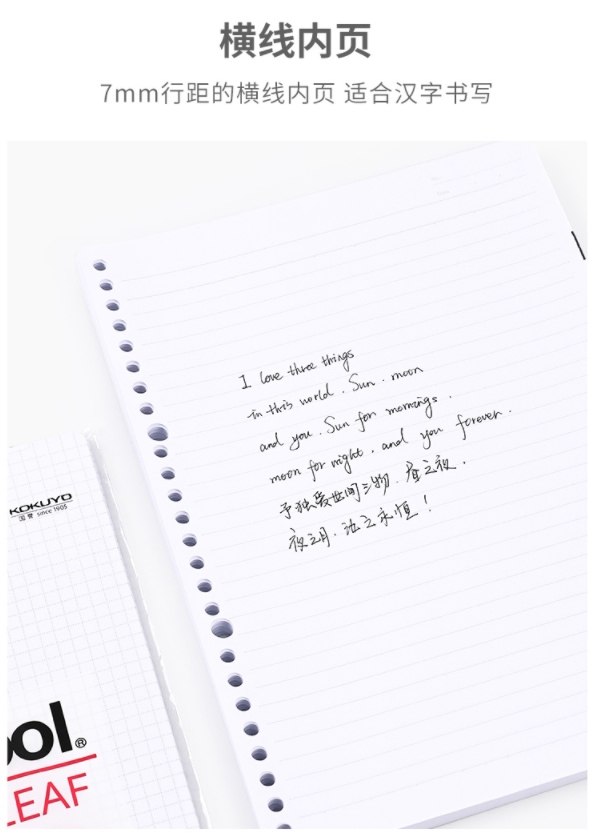 横线内页
7mm行距的横线内页 适合汉字书写
I love three things
in this world . Sun . moon
and you . Sun for mornings .
moon for night , and you forever .
予独爱世间三物 . 昼之夜 .
夜之月 . 汝之永恒 !
KOKUYO
国誉 since 1905
ool®
LEAF